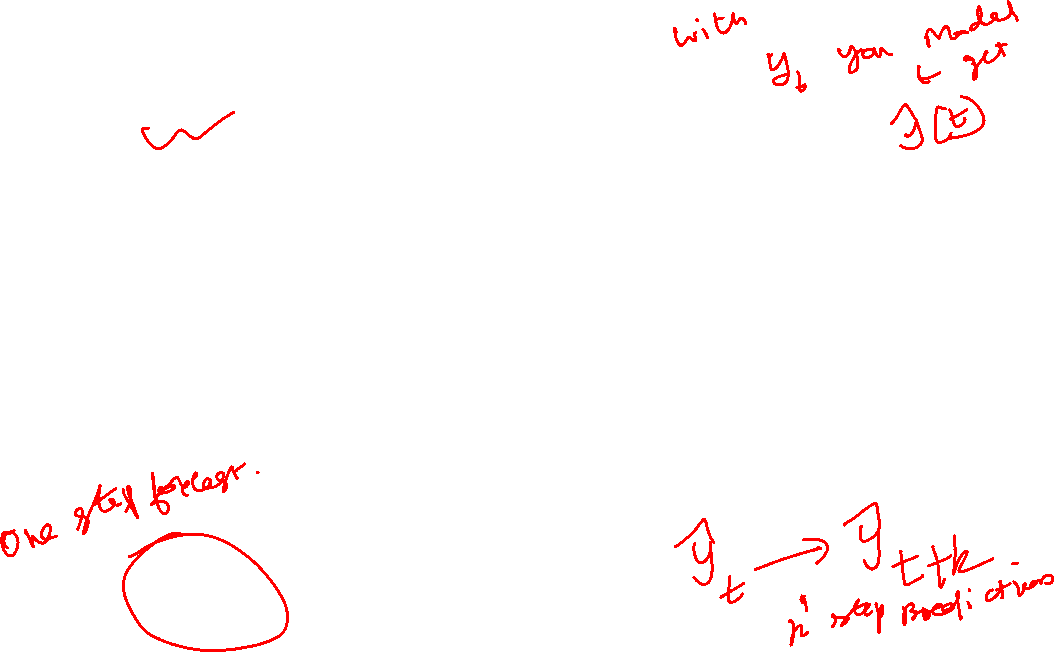 with
y_t you Model
get
ŷ(t)
One step forecast.
ŷ_t → ŷ_t+k
n' step Predictions